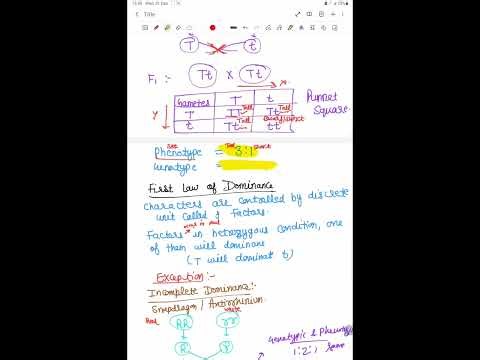 Title
T t
F₁ :- Tt X Tt
x
Gametes T t
Y T TT Tall Tt Tall
t Tt Tall tt
Punnet
Square
see
Phenotype = Tall 3:1
Genotype =
First Law of Dominance
Characters are controlled by discrete
unit called Factors.
Factors in hetrozygous condition, one
of them will dominate
(T will dominat t)
Exception:-
Incomplete Dominance:-
Snapdragon / Antirrhinum
Red white
RR rr
R r
Genotypic &
1:2:1 same